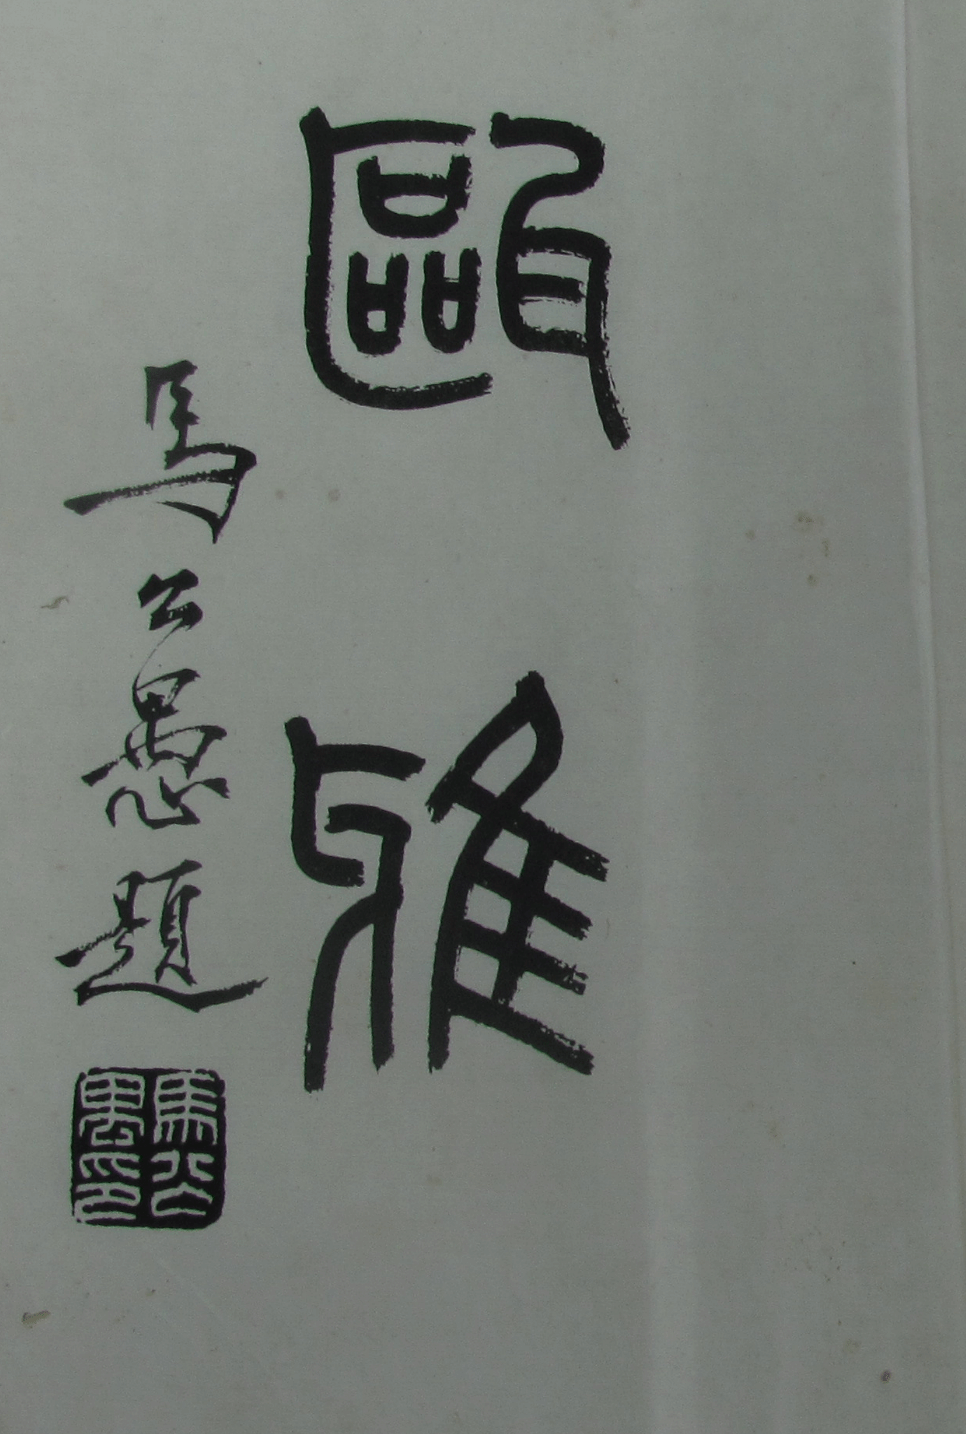 甌雅
馬公愚題
馬公愚印